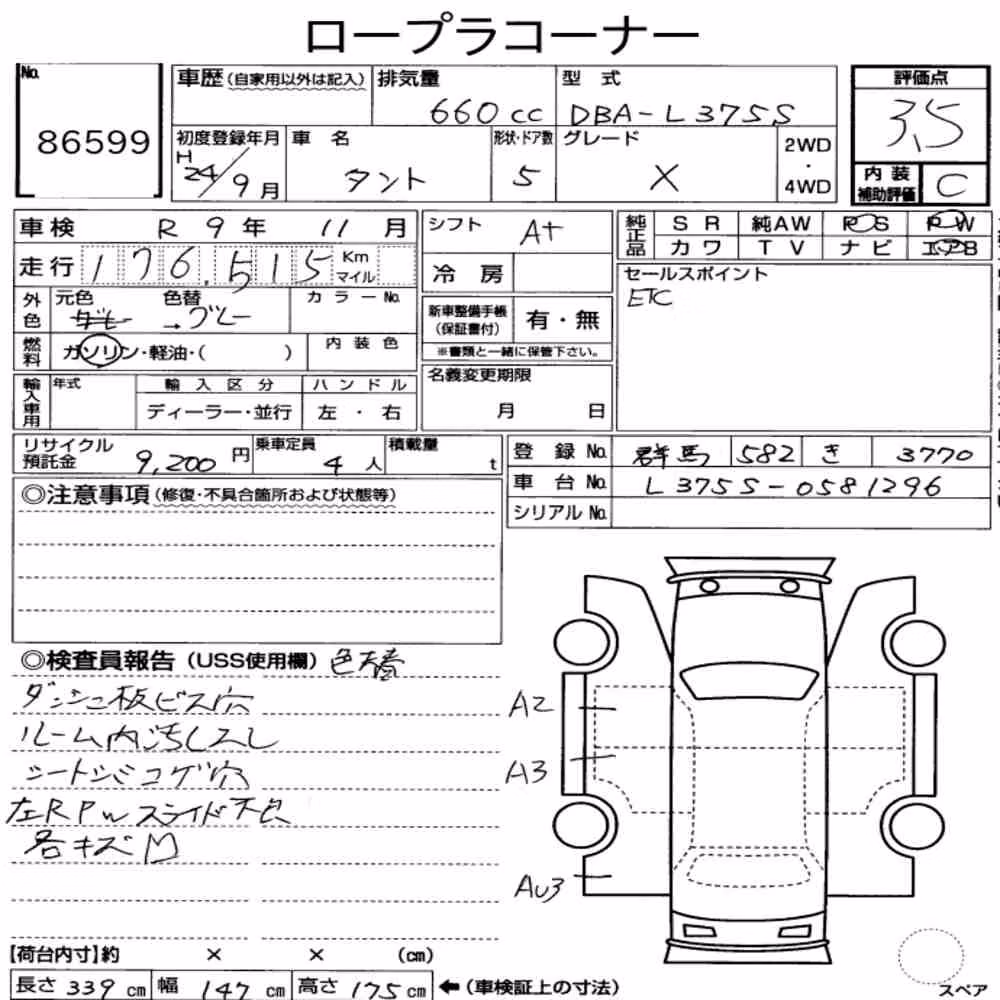 ロープラコーナー
No.
86599
車歴(自家用以外は記入)
排気量
660cc
型式
DBA-L375S
評価点
3.5
初度登録年月
H
24/9月
車名
タント
形状・ドア数
5
グレード
X
2WD
・
4WD
内装
補助評価
C
車検
R 9年 11月
シフト
A+
純正品
SR
純AW
P○S
P○W
カワ
TV
ナビ
走行
176.515
Km
マイル
冷房
セールスポイント
ETC
外色
元色
色替
→グレー
カラーNo.
新車整備手帳
(保証書付)
有・無
※書類と一緒に保管下さい。
燃料
ガソリン・軽油・( )
内装色
輸入車用
年式
輸入区分
ハンドル
ディーラー・並行
左・右
名義変更期限
月 日
リサイクル
預託金
9,200円
乗車定員
4人
積載量
t
登録No.
群馬 582 き 3770
車台No.
L375S-0581296
シリアルNo.
◎注意事項(修復・不具合箇所および状態等)
◎検査員報告(USS使用欄)色替
ダッシュ板ビス穴
ルーム内汚レスレ
シートシミコゲ穴
左RPwスライド不良
各キズ凹
A2
A3
AU3
【荷台内寸】約 × × (cm)
長さ 339 cm
幅 147 cm
高さ 175 cm
←(車検証上の寸法)
スペア